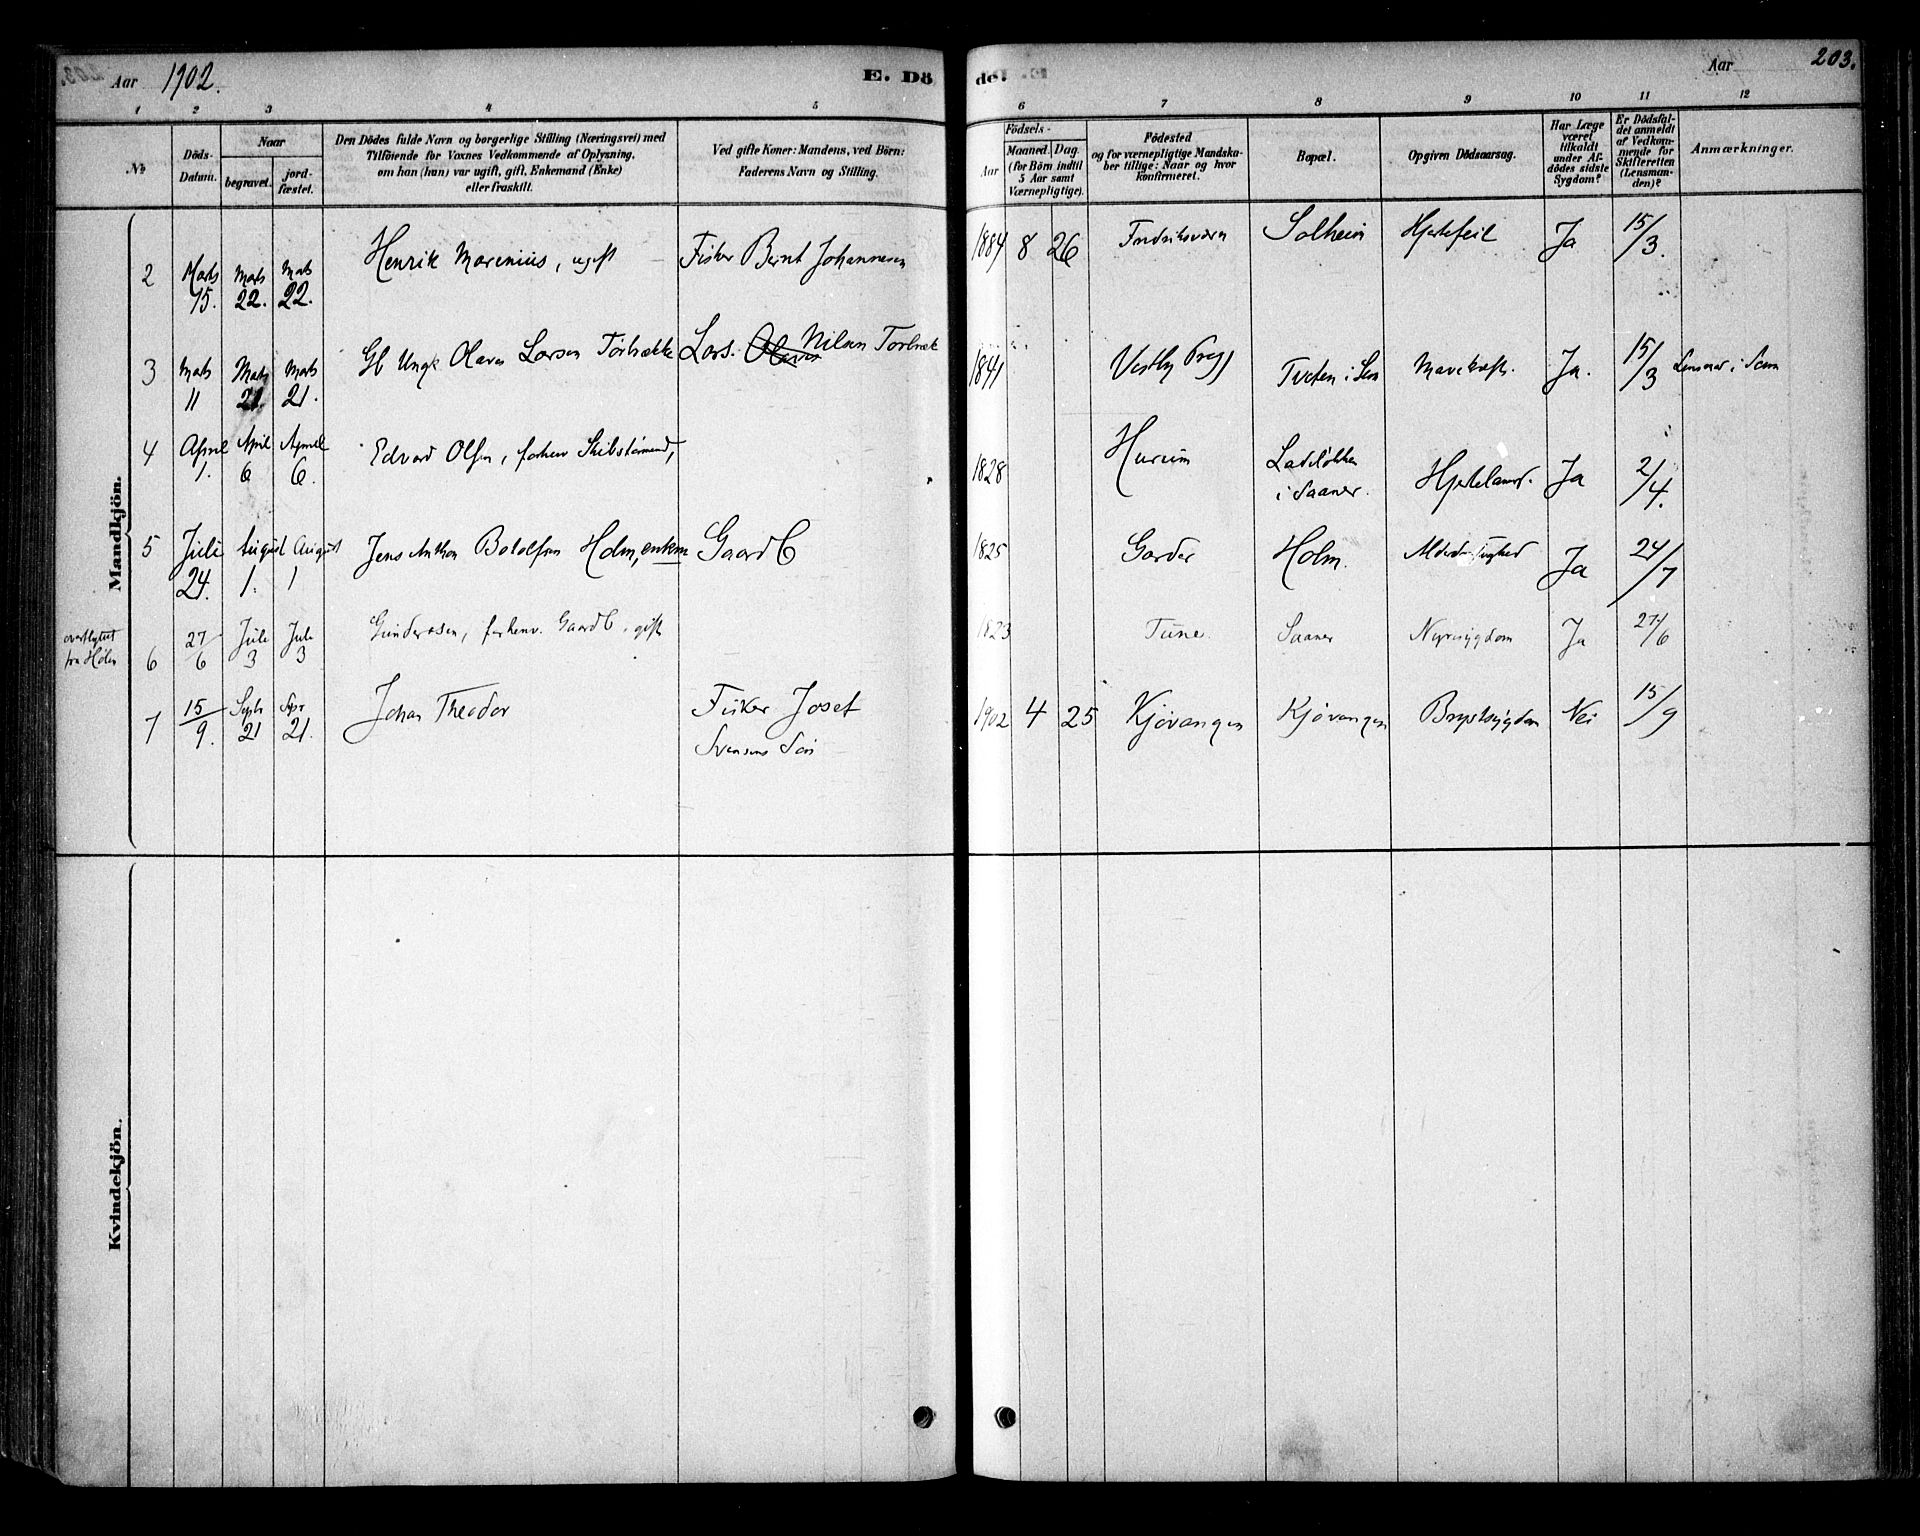 Aar 1902.
E. Dö
de.
Aar
203.
1 2 3 4 5 6 7 8 9 10 11 12
No
Döds-Datum.
Naar
begravet.
jord-fæstet.
Den Dödes fulde Navn og borgerlige Stilling (Næringsvei) med
Tilföiende for Voxnes Vedkommende af Oplysning,
om han (hun) var ugift, gift, Enkemand (Enke)
eller fraskilt.
Ved gifte Koner: Mandens, ved Börn:
Faderens Navn og Stilling.
Födsels-
Aar
Maaned. Dag.
(for Börn indtil
5 Aar samt
Værnepligtige).
Födested
og for værnepligtige Mandska-
ber tillige: Naar og hvor
konfirmeret.
Bopæl.
Opgiven Dödsaarsag.
Har Læge
været
tilkaldt
under Af-
dödes sidste
Sygdom?
Er Dödsfal-
det anmeldt
af Vedkom-
mende for
Skifteretten
(Lensman-
den)?
Anmærkninger.
Mandkjön.
2 Marts 15. Marts 22. Marts 22. Henrik Marenius, ugift Fisker Bernt Johannesen 1884 8 26 Fredriksværn Solheim Hjertefeil Ja 15/3.
3 Marts 11 Marts 21. Marts 21. Gl Ungk Olaves Larsen Torbrække Lars Olaves Nilsen 1841 Vestby Prgj Tveten i Sem Ja. 15/3 i Sem
4 April 1. April 6 April 6. Edvard Olsen, forhenv Skibstømmermd, 1828 Hurum
i Saaner. Ja 2/4.
5 Juli 24. August 1. August 1 Jens Anthon Botolfsen Holm, enkem Gaardb 1825 Garder Holm. Ja 24/7
overflyttet
fra Hölen
6 27/6 Juli 3 Juli 3 Gundersen, forhenv. Gaardb. gift 1823 Tune Saaner Nyresygdom Ja 27/6
7 15/9. Septr 21 Sepr 21. Johan Theodor Fisker Josef 1902 4 25 Kjøvangen Kjøvangen Brystsygdom Nei 15/9
Svensens Søn
Kvindekjön.